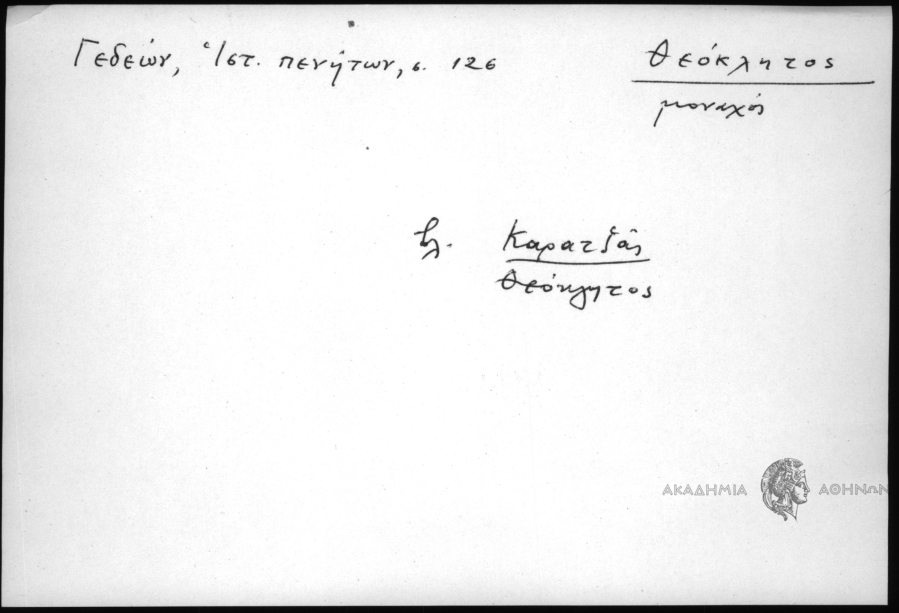 Γεδεών, Ἱστ. πενήτων, σ. 126
Θεόκλητος
μοναχός
βλ. Καρατζᾶς
Θεόκλητος
ΑΚΑΔΗΜΙΑ ΑΘΗΝΩΝ